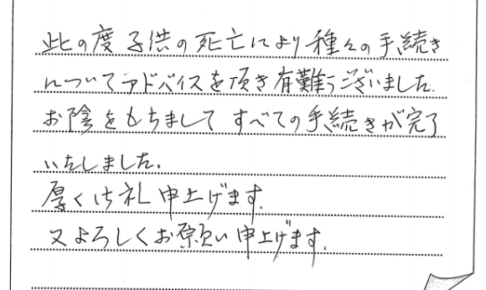 此の度子供の死亡により種々の手続き
についてアドバイスを頂き有難うございました.
お陰をもちまして すべての手続きが完了
いたしました。
厚く御礼申上げます.
又よろしくお願い申上げます.